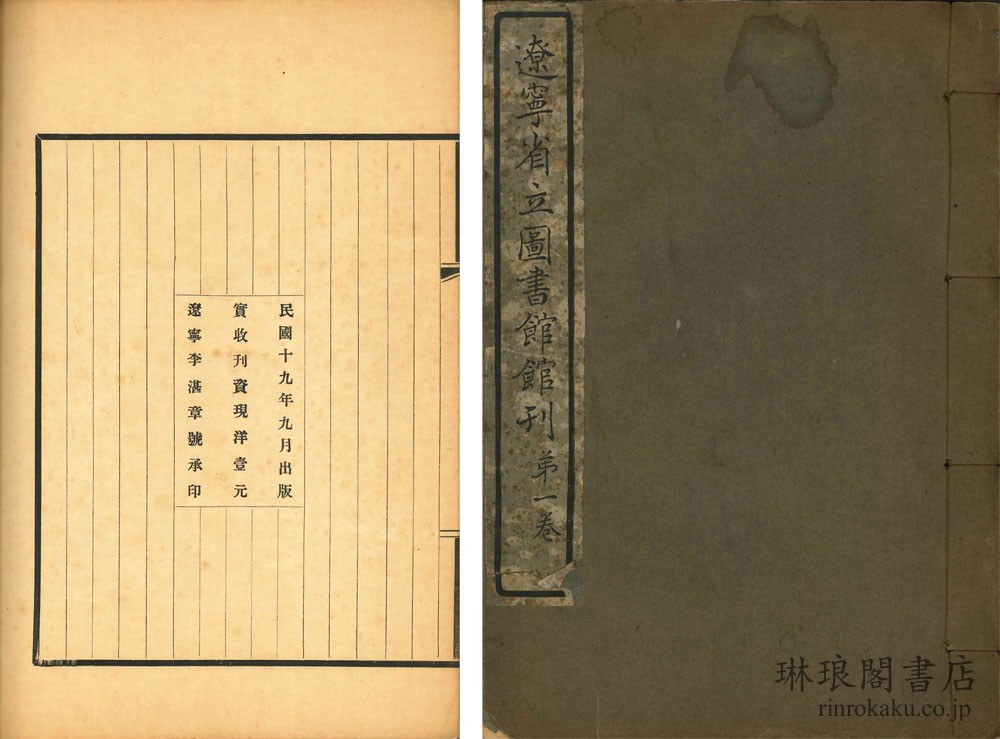 民國十九年九月出版
實收刊資現洋壹元
遼寧李湛章號承印
遼寧省立圖書館館刊 第一卷
琳琅閣書店
rinrokaku.co.jp